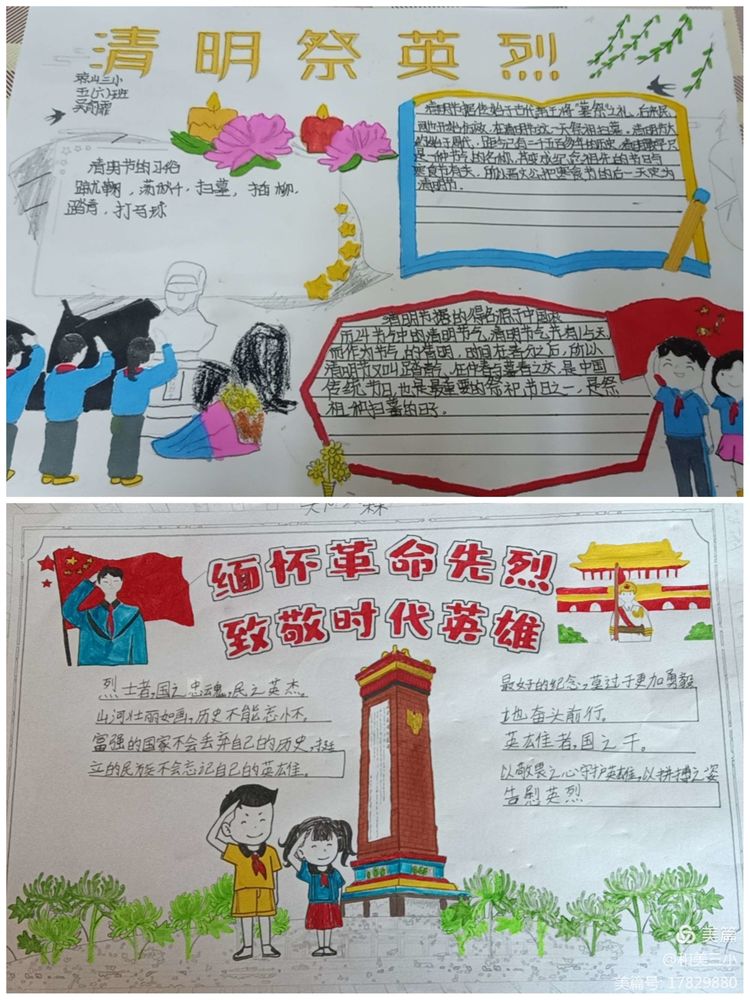 清明祭英烈
琼山三小
五(六)班
清明节的习俗
蹴鞠，荡秋千，扫墓，插柳，
踏青，打马球
清明节据传始于古代帝王将"墓祭"之礼，后来民
间也开始仿效，在清明节这一天祭祖扫墓，清明节大
约始于周代，距今已有二千五百多年的历史，清明最早只
是一种节气的名称，其变成纪念祖先的节日与
寒食节有关，
清明节。
清明节据的得名源于中国农
历24节气中的清明节气，清明节气共有15天
而作为节气的清明，时间在春分之后，所以
清明节又叫踏青节，在仲春与暮春之交，是中国
传统节日，也是最重要的祭祀节日之一，是祭
祖和扫墓的日子。
缅怀革命先烈
致敬时代英雄
烈士者，国之忠魂，民之英杰。
山河壮丽如画，历史不能忘怀。
富强的国家不会丢弃自己的历史，挺
立的民族不会忘记自己的英雄。
最好的纪念，莫过于更加勇毅
地奋头前行。
英雄者，国之干。
以敬畏之心守护英雄，以拼搏之姿
告慰英烈
美篇
@和美三小
美篇号: 17829880